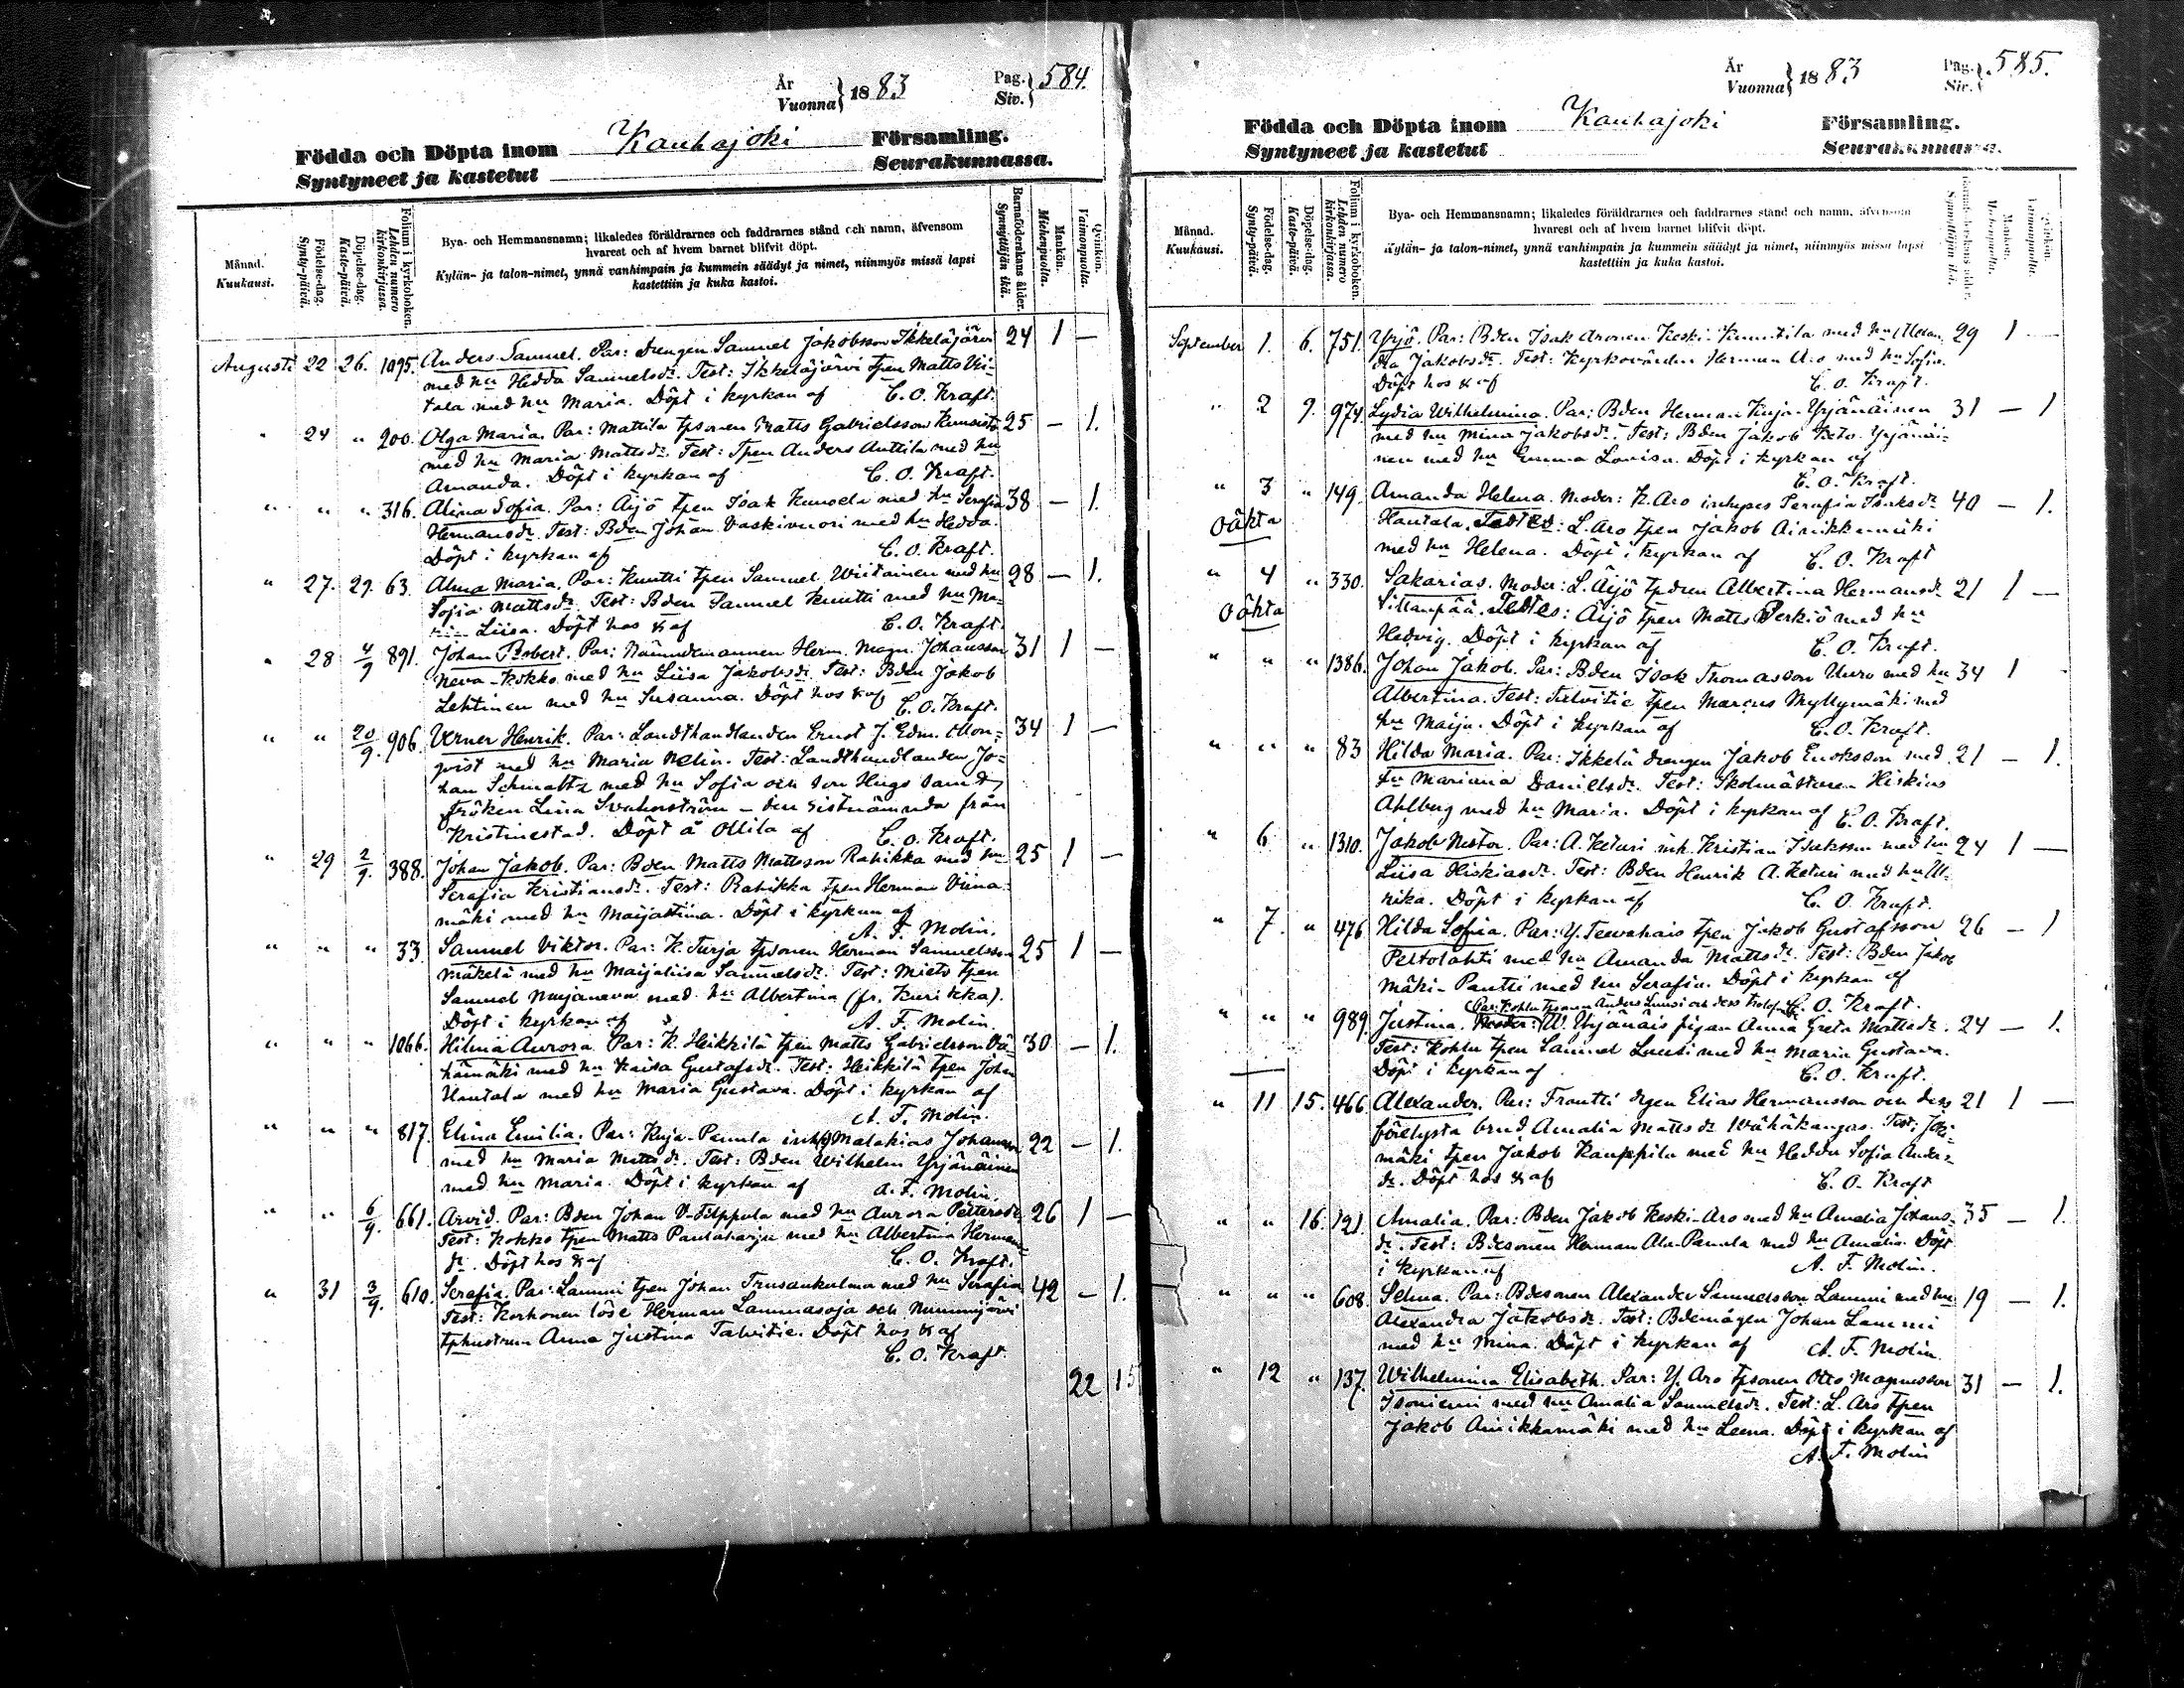 År
Vuonna } 1883
Pag.
Siv. } 584.
Födda och Döpta inom Kauhajoki Församling.
Syntyneet ja kastetut Seurakunnassa.
Månad.
Kuukausi.
Födelse-dag.
Synty-päivä.
Döpelse-dag.
Kaste-päivä.
Folium i kyrkoboken.
Lehden numero
kirkonkirjassa.
Bya- och Hemmansnamn; likaledes föräldrarnes och faddrarnes stånd och namn, äfvensom
hvarest och af hvem barnet blifvit döpt.
Kylän- ja talon-nimet, ynnä vanhimpain ja kummein säädyt ja nimet, niinmyös missä lapsi
kastettiin ja kuka kastoi.
Barnaföderskans ålder.
Synnyttäjän ikä.
Mankön.
Miehenpuolta.
Qvinkön.
Vaimonpuolta.
Augusti 22 26. 1095. Anders Samuel. Par: Drengen Samuel Jakobsson Ikkeläjärvi 24 1 —
med hu Hedda Samuelsdr. Test: Ikkeläjärvi tpen Matts Vii-
tala med hu Maria. Döpt i kyrkan af C. O. Kraft.
" 24 " 200. Olga Maria. Par: Mattila tpsonen Matts Gabrielsson 25 — 1.
med hu Maria Mattsdr. Test: Tpen Anders Anttila med hu
Amanda. Döpt i kyrkan af C. O. Kraft.
" " " 316. Alina Sofia. Par: Äijö tpen Isak Kunoela med hu Serafia 38 — 1.
Hermansdr. Test: Bden Johan Vaskivuori med hu Hedda.
Döpt i kyrkan af C. O. Kraft.
" 27. 29. 63. Alma Maria. Par: Kuntti tpen Samuel Wiitainen med hu 28 — 1.
Sofia Mattsdr. Test: Bden Samuel Kuntti med hu Ma-
ria Liisa. Döpt hos & af C. O. Kraft.
" 28 4/9 891. Johan Robert. Par: Nämndemannen Herm. Magn. Johansson 31 1 —
Neva-Kokko med hu Liisa Jakobsdr. Test: Bden Jakob
Lehtinen med hu Susanna. Döpt hos & af C. O. Kraft.
" " 20/9. 906. Verner Henrik. Par: Landthandlanden Ernst J. Edm. Mon= 34 1 —
qvist med hu Maria Melin. Test: Landthandlanden Jo=
han Schmaltz med hu Sofia och son Hugo samt
fröken Lina Svahnström – den sistnämnda från
Kristinestad. Döpt å Ollila af C. O. Kraft.
" 29 2/9. 388. Johan Jakob. Par: Bden Matts Mattsson Rahikka med hu 25 1 —
Serafia Kristiansdr. Test: Rahikka tpen Herman Viina=
mäki med hu Maijastina. Döpt i kyrkan af
A. F. Molin.
" " " 33. Samuel Viktor. Par: K. Turja tpsonen Herman Samuelsson 25 1 —
Mäkelä med hu Maijaliisa Samuelsdr. Test: Mieto tpen
Samuel Marjaneva med hu Albertina (fr. Kurikka).
Döpt i kyrkan af A. F. Molin.
" " " 1066. Hilma Aurora. Par: K. Heikkilä tpen Matts Gabrielsson Vä- 30 — 1.
hämäki med hu Kaisa Gustafsdr. Test: Heikkilä tpen Johan
Hautala med hu Maria Gustava. Döpt i kyrkan af
A. F. Molin.
" " " 817. Elina Emilia. Par: Kuja-Panula inhys Malakias Johansson 22 — 1.
med hu Maria Mattsdr. Test: Bden Wilhelm Yrjänäinen
med hu Maria. Döpt i kyrkan af A. F. Molin.
" " 6/9. 661. Arvid. Par: Bden Johan V-Filppula med hu Aurora Pettersdr. 26 1 —
Test: Kokko tpen Matts Pantaharju med hu Albertina Hermans-
dr. Döpt hos & af C. O. Kraft.
" 31 3/9. 610. Serafia. Par: Lammi tpen Johan Trusankulma med hu Serafia 42 — 1.
Test: Korhonen löse Herman Lammasoja och Nummijärvi
tphustrun Anna Justina Talvitie. Döpt hos & af
C. O. Kraft.
22 15
År
Vuonna } 1883
Pag.
Siv. } 585.
Födda och Döpta inom Kauhajoki Församling.
Syntyneet ja kastetut Seurakunnassa.
Månad.
Kuukausi.
Födelse-dag.
Synty-päivä.
Döpelse-dag.
Kaste-päivä.
Folium i kyrkoboken.
Lehden numero
kirkonkirjassa.
Bya- och Hemmansnamn; likaledes föräldrarnes och faddrarnes stånd och namn, äfvensom
hvarest och af hvem barnet blifvit döpt.
Kylän- ja talon-nimet, ynnä vanhimpain ja kummein säädyt ja nimet, niinmyös missä lapsi
kastettiin ja kuka kastoi.
Synnyttäjän ikä.
Mankön.
Miehenpuolta.
Vaimonpuolta.
September 1. 6. 751. Yrjö. Par: Bden Isak Aronen Keski-Knuuttila med hu Alexan- 29 1 —
dra Jakobsdr. Test: Kyrkovärden Herman Aro med hu Sofia.
Döpt hos & af C. O. Kraft.
" 2 9. 974. Lydia Wilhelmina. Par: Bden Herman Kuja-Yrjänäinen 31 — 1
med hu Mina Jakobsdr. Test: Bden Jakob Keto-Yrjänäi-
nen med hu Emma Lovisa. Döpt i kyrkan af
C. O. Kraft.
" 3 " 149. Amanda Helena. Moder: K. Aro inhyses Serafia Isaksdr 40 — 1.
oäkta Hautala. Testes: L. Aro tpen Jakob Ainikkamäki
med hu Helena. Döpt i kyrkan af C. O. Kraft
" 4 " 330. Sakarias. Moder: L. Äijö tpdren Albertina Hermansdr 21 1 —
oäkta Sillanpää. Testes: Äijö tpen Matts Perkiö med hu
Hedvig. Döpt i kyrkan af C. O. Kraft.
" " " 1386. Johan Jakob. Par: Bden Isak Thomasson Uuro med hu 34 1
Albertina. Test: Talvitie tpen Marcus Myllymäki med
hu Maija. Döpt i kyrkan af C. O. Kraft.
" " " 83 Hilda Maria. Par: Ikkelä drengen Jakob Enoksson med 21 — 1.
hu Mariana Danielsdr. Test: Skolmästaren Hiskias
Ahlberg med hu Maria. Döpt i kyrkan af C. O. Kraft.
" 6 " 1310. Jakob Nestor. Par: A. Keturi inh. Kristian Isaksson med hu 24 1 —
Liisa Hiskiasdr. Test: Bden Henrik A. Keturi med hu Ul-
rika. Döpt i kyrkan af C. O. Kraft.
" 7. " 476 Hilda Sofia. Par: Y. Teevahais tpen Jakob Gustafsson 26 — 1
Peltolahti med hu Amanda Mattsdr. Test: Bden Jakob
Mäki-Pantti med hu Serafia. Döpt i kyrkan af
C. O. Kraft.
(Par: Kohlu tpsonen Anders Luusi och dess trolofv.)
" " " 989. Justina. Moder: W. Yrjänäis pigan Anna Greta Mattsdr. 24 — 1.
Test: Kohlu tpen Samuel Luusi med hu Maria Gustava.
Döpt i kyrkan af C. O. Kraft.
" 11 15. 466. Alexander. Par: Frantti drgen Elias Hermansson och dess 21 1 —
förelysta brud Amalia Mattsdr Wähäkangas. Test: Joki-
mäki tpen Jakob Kauppila med hu Hedda Sofia Anders-
dr. Döpt hos & af C. O. Kraft
" " 16. 121. Amalia. Par: Bden Jakob Keski-Aro med hu Amalia Johans- 35 — 1.
dr. Test: Bdesonen Herman Ala-Panula med hu Amalia. Döpt
i kyrkan af A. F. Molin.
" " " 608. Selma. Par: Bdesonen Alexander Samuelsson Lammi med hu 19 — 1.
Alexandra Jakobsdr. Test: Bdemågen Johan Lammi
med hu Mina. Döpt i kyrkan af A. F. Molin.
" 12 " 137. Wilhelmina Elisabeth. Par: Y. Aro tpsonen Otto Magnusson 31 — 1.
Isoniemi med hu Amalia Samuelsdr. Test: L. Aro tpen
Jakob Ainikkamäki med hu Leena. Döpt i kyrkan af
A. F. Molin